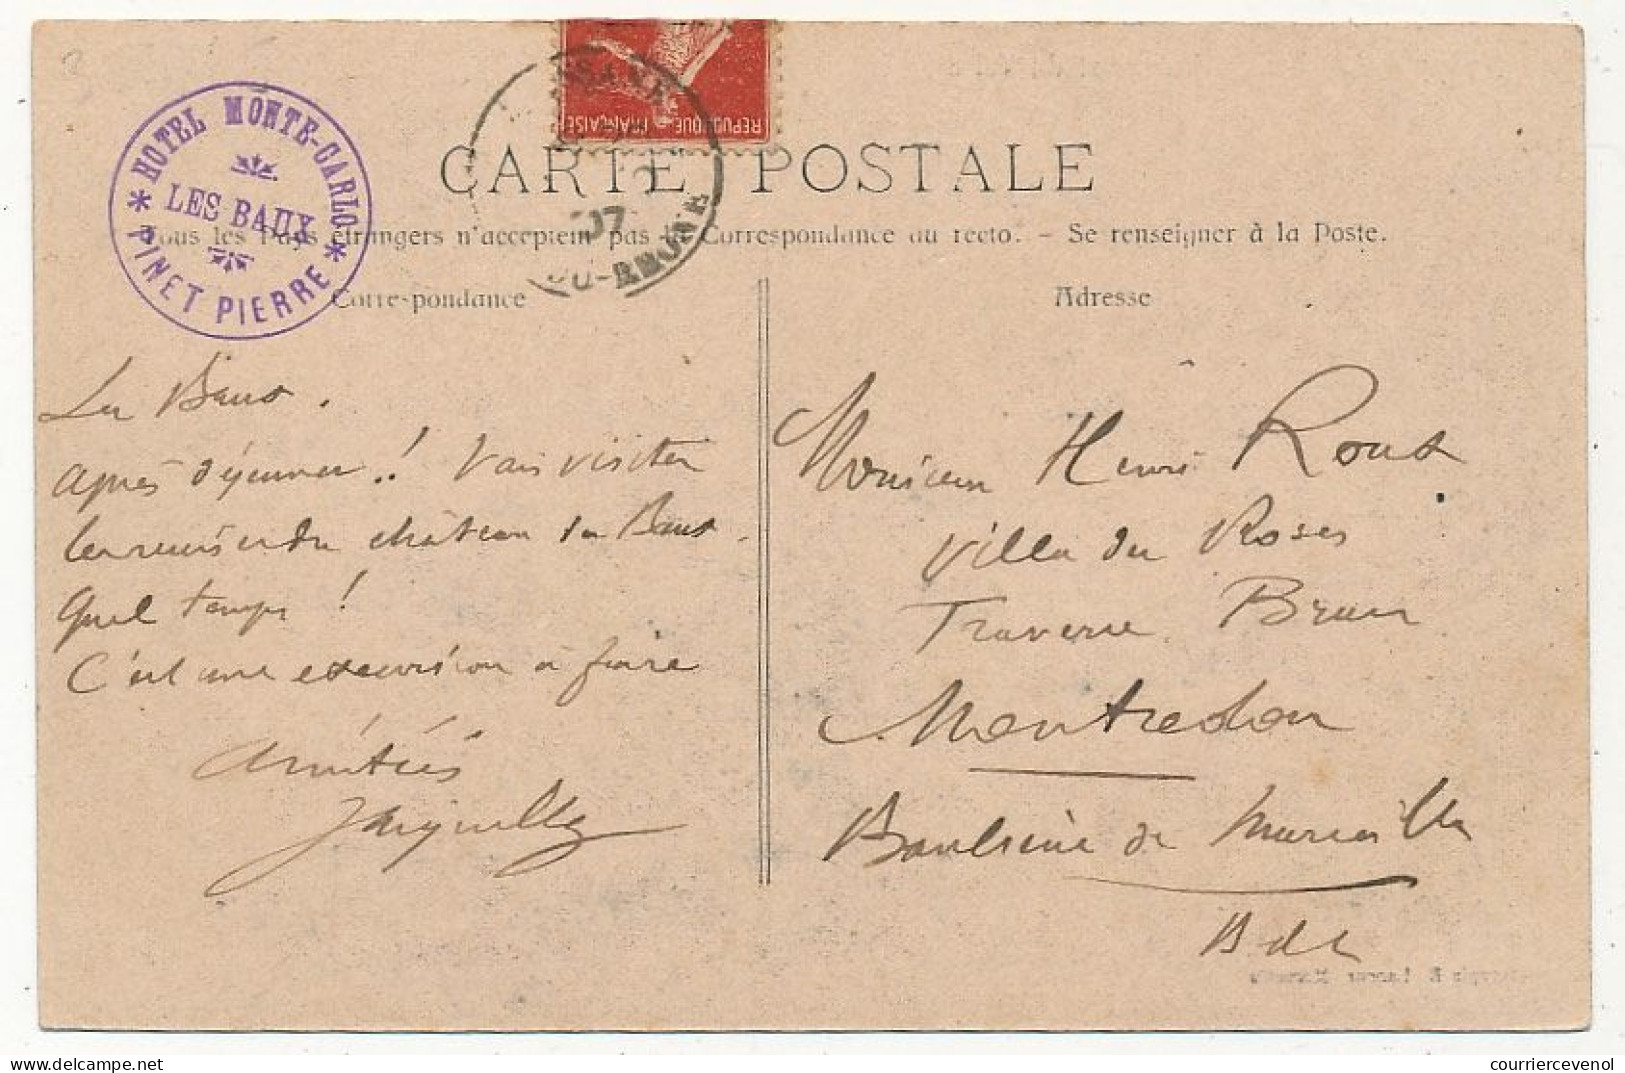 HOTEL MONTE-CARLO
LES BAUX
* PINET PIERRE *
REPUBLIQUE FRANÇAISE
07
DU-RHONE
CARTE POSTALE
Tous les Pays étrangers n'acceptent pas la Correspondance au recto. - Se renseigner à la Poste.
Correspondance
Adresse
Les Baux.
après déjeuner !! Vais visiter
les ruines du château des Baux.
Quel temps !
C'est une excursion à faire
Amitiés
Monsieur Henri Roux
Villa des Roses
Traverse Brun
Montredon
Banlieue de Marseille
B d R
courriercevenol